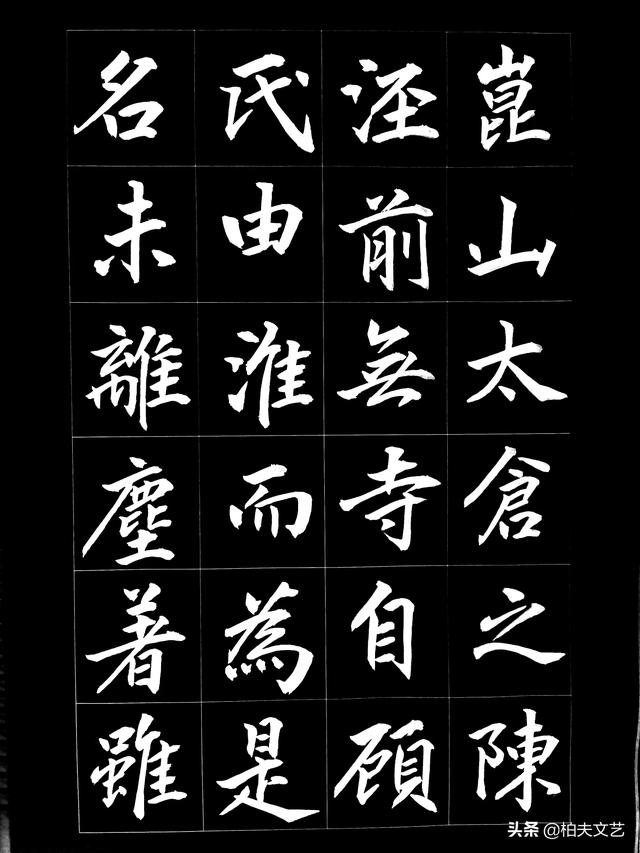 崑山太倉之陳
涇前無寺自顧
氏由淮而為是
名未離塵著雖
头条 @柏夫文艺